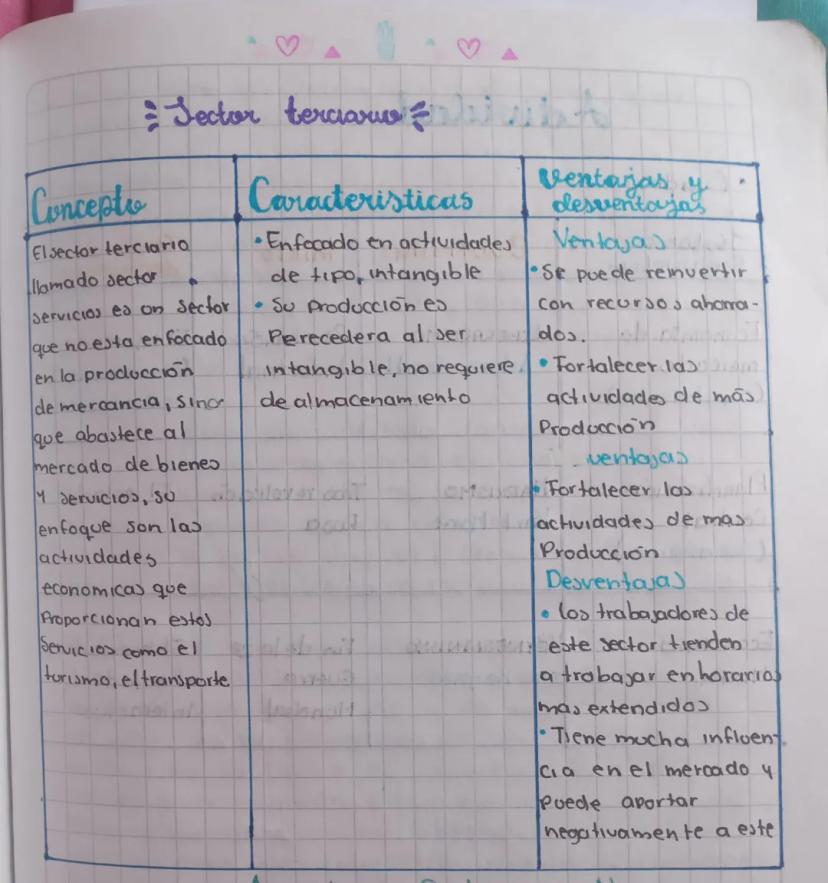 Sector terciario
Concepto
El sector terciario
llamado sector
servicios es un sector
que no esta enfocado
en la producción
de mercancia, sino
que abastece al
mercado de bienes
y servicios, su
enfoque son las
actividades
economicas que
Proporcionan estos
Servicios como el
turismo, el transporte
Caracteristicas
• Enfocado en actividades
de tipo, intangible
• Su Producción es
Perecedera al ser
intangible, no requiere
de almacenamiento
Ventajas y
desventajas
Ventajas
• Se puede reinvertir
con recursos ahorra-
dos.
• Fortalecer las
actividades de más
Producción
ventajas
• Fortalecer las
actividades de mas
Producción
Desventajas
• los trabajadores de
este sector tienden
a trabajar en horarios
mas extendidos
• Tiene mucha influen-
cia en el mercado y
puede aportar
negativamente a este